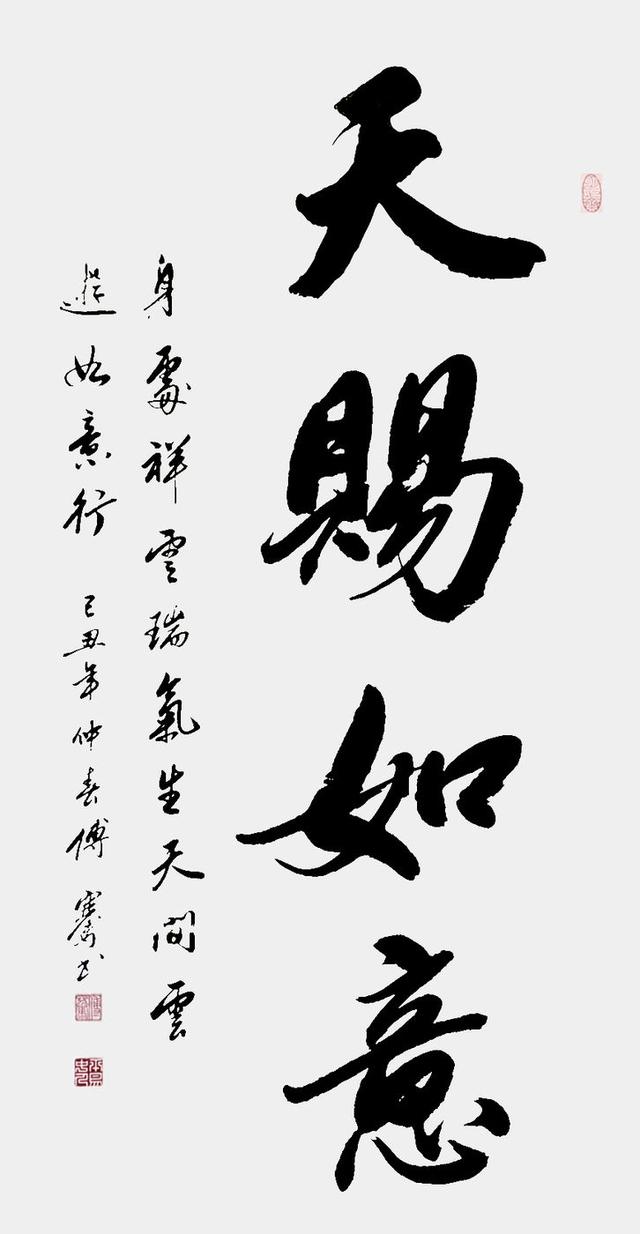 天賜如意
身處祥雲瑞氣生天間雲
遊如意行 己丑年仲春傅書